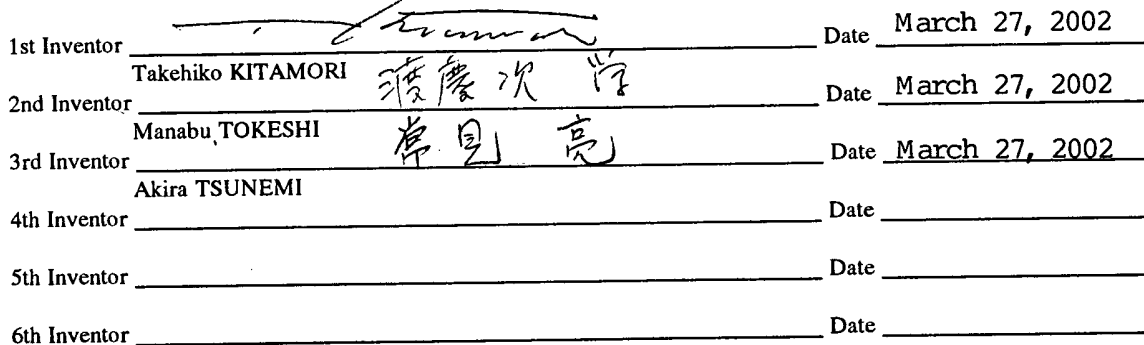 1st Inventor Date March 27, 2002
Takehiko KITAMORI
2nd Inventor 渡慶次 学 Date March 27, 2002
Manabu TOKESHI
3rd Inventor 常見 亮 Date March 27, 2002
Akira TSUNEMI
4th Inventor Date
5th Inventor Date
6th Inventor Date